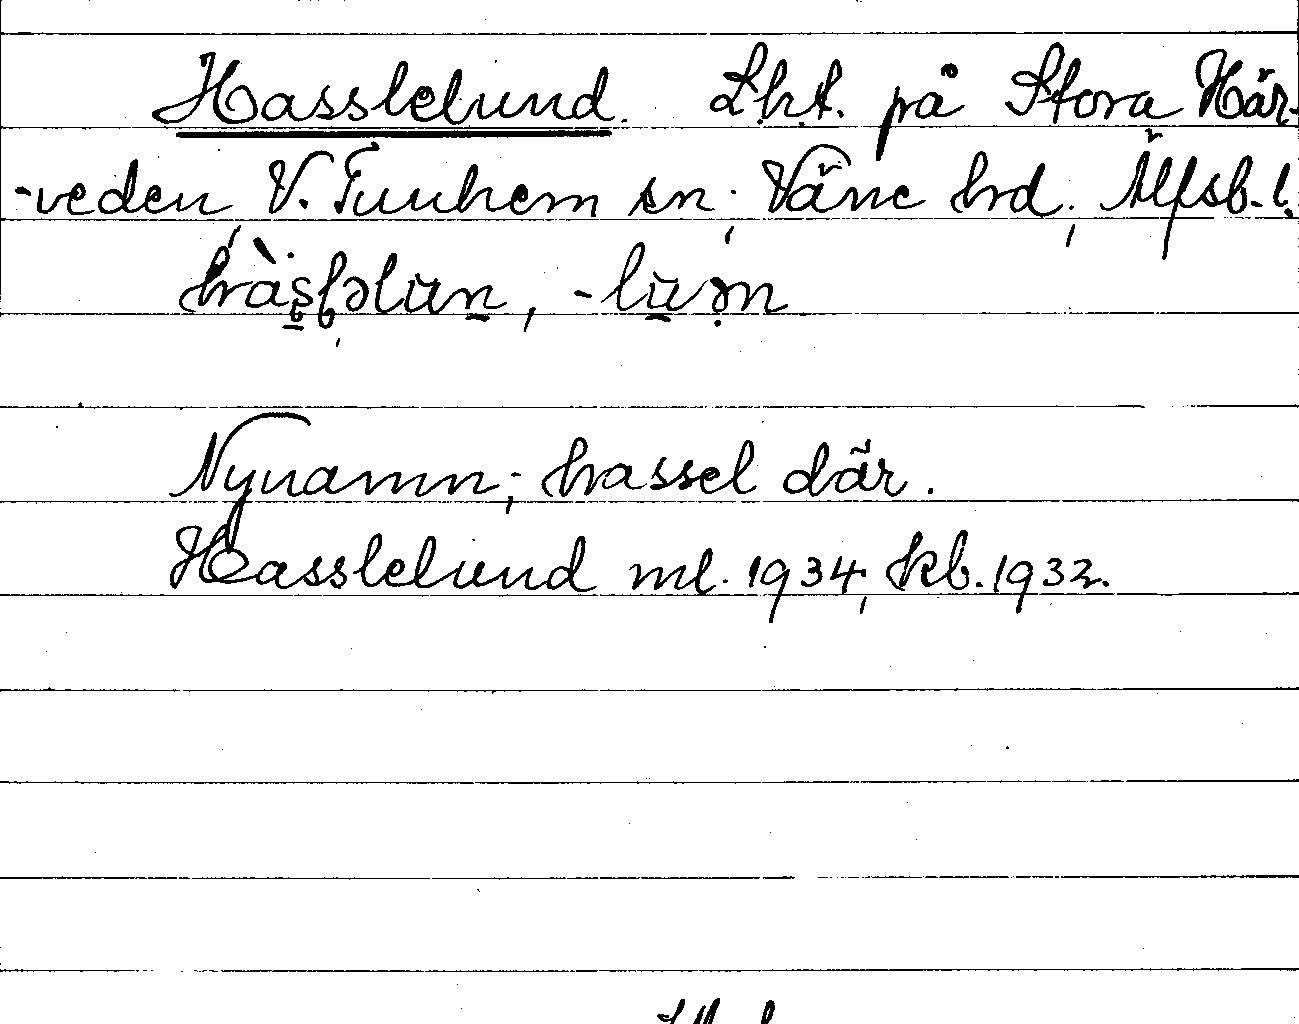 Hasslelund. L.h.t. på Stora Här-
-veden, V. Tunhem sn; Väne hd; Älfsb. l.
Nynamn; hassel där.
Hasslelund ml. 1934, kb. 1932.